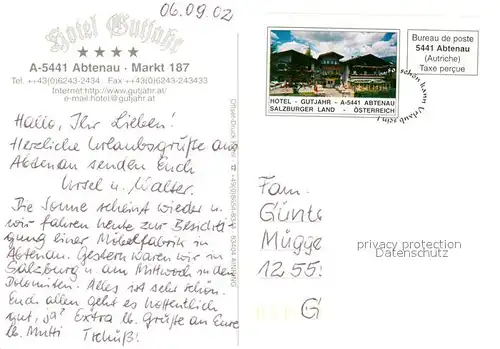 06.09.02
Hotel Gutjahr
A-5441 Abtenau · Markt 187
Tel. ++43(0)6243-2434 Fax ++43(0)6243-243433
Internet:http://www.gutjahr.at/
e-mail:hotel@gutjahr.at
Hallo, Ihr Lieben!
Herzliche Urlaubsgrüße aus
Abtenau senden Euch
Ursel u. Walter.
Die Sonne scheint wieder u.
wir fahren heute zur Besichti
gung einer Möbelfabrik in
Abtenau. Gestern waren wir in
Salzburg u. am Mittwoch in den
Dolomiten. Alles ist sehr schön.
Euch allen geht es hoffentlich
gut, "ja" Extra lb. Grüße an Eure
lb. Mutti Tschüß!
HOTEL - GUTJAHR - A-5441 ABTENAU
SALZBURGER LAND - ÖSTERREICH
so schön kann Urlaub sein!
Bureau de poste
5441 Abtenau
(Autriche)
Taxe perçue
Fam.
Günte
Mügge
1255
G
privacy protection
Datenschutz